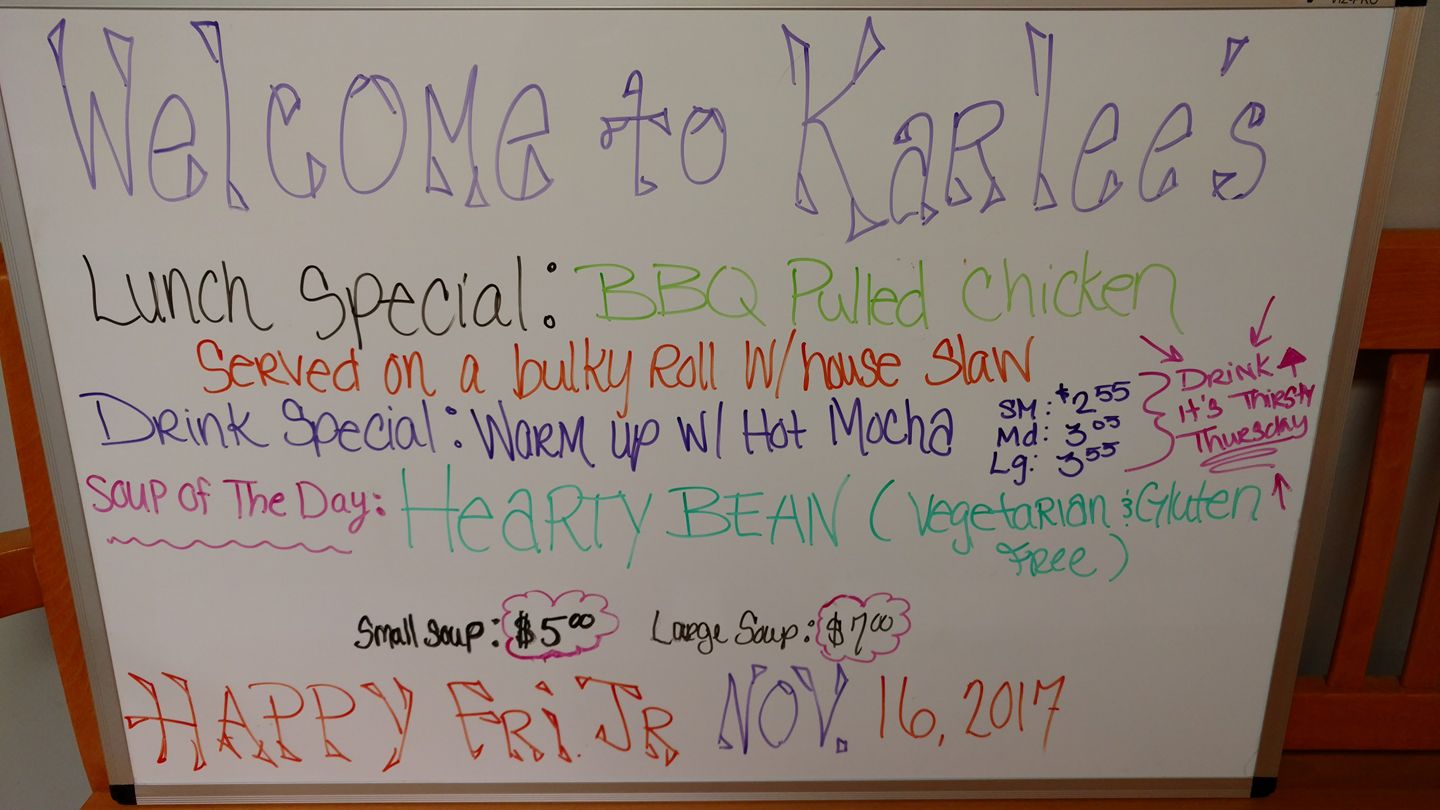 Welcome to Karlee's
Lunch Special: BBQ Pulled Chicken
Served on a bulky Roll w/house Slaw
Drink Special: Warm up w/ Hot Mocha
SM: $2.55
Md: 3.05
Lg: 3.55
Drink
it's Thirsty
Thursday
Soup of The Day: Hearty BEAN (Vegetarian & Gluten
Free)
Small soup: $5.00 Large Soup: $7.00
HAPPY Fri. Jr Nov. 16, 2017